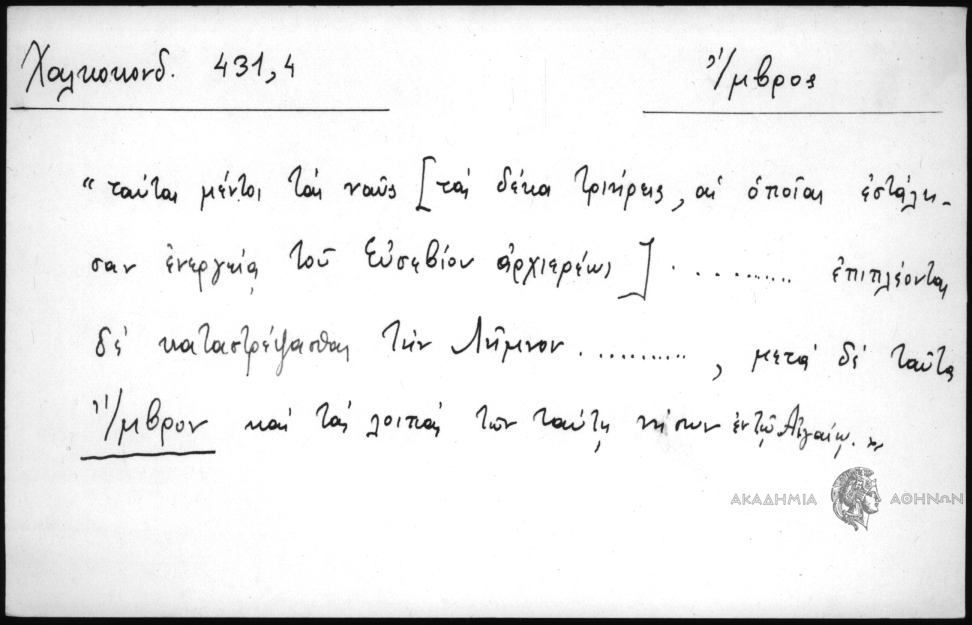 Χαλκοκονδ. 431,4
Ἴμβρος
“ταύτας μέντοι τὰς ναῦς [τὰς δέκα τριήρεις, αἱ ὁποῖαι ἐστάλη-
σαν ἐνεργείᾳ τοῦ Εὐσεβίου ἀρχιερέως] .......... ἐπιπλέοντας
δέ καταστρέψασθαι τὴν Λῆμνον .........., μετὰ δέ ταῦτα
Ἴμβρον καὶ τὰς λοιπὰς τῶν ταύτῃ νήσων ἐν τῷ Αἰγαίῳ.„
ΑΚΑΔΗΜΙΑ ΑΘΗΝΩΝ